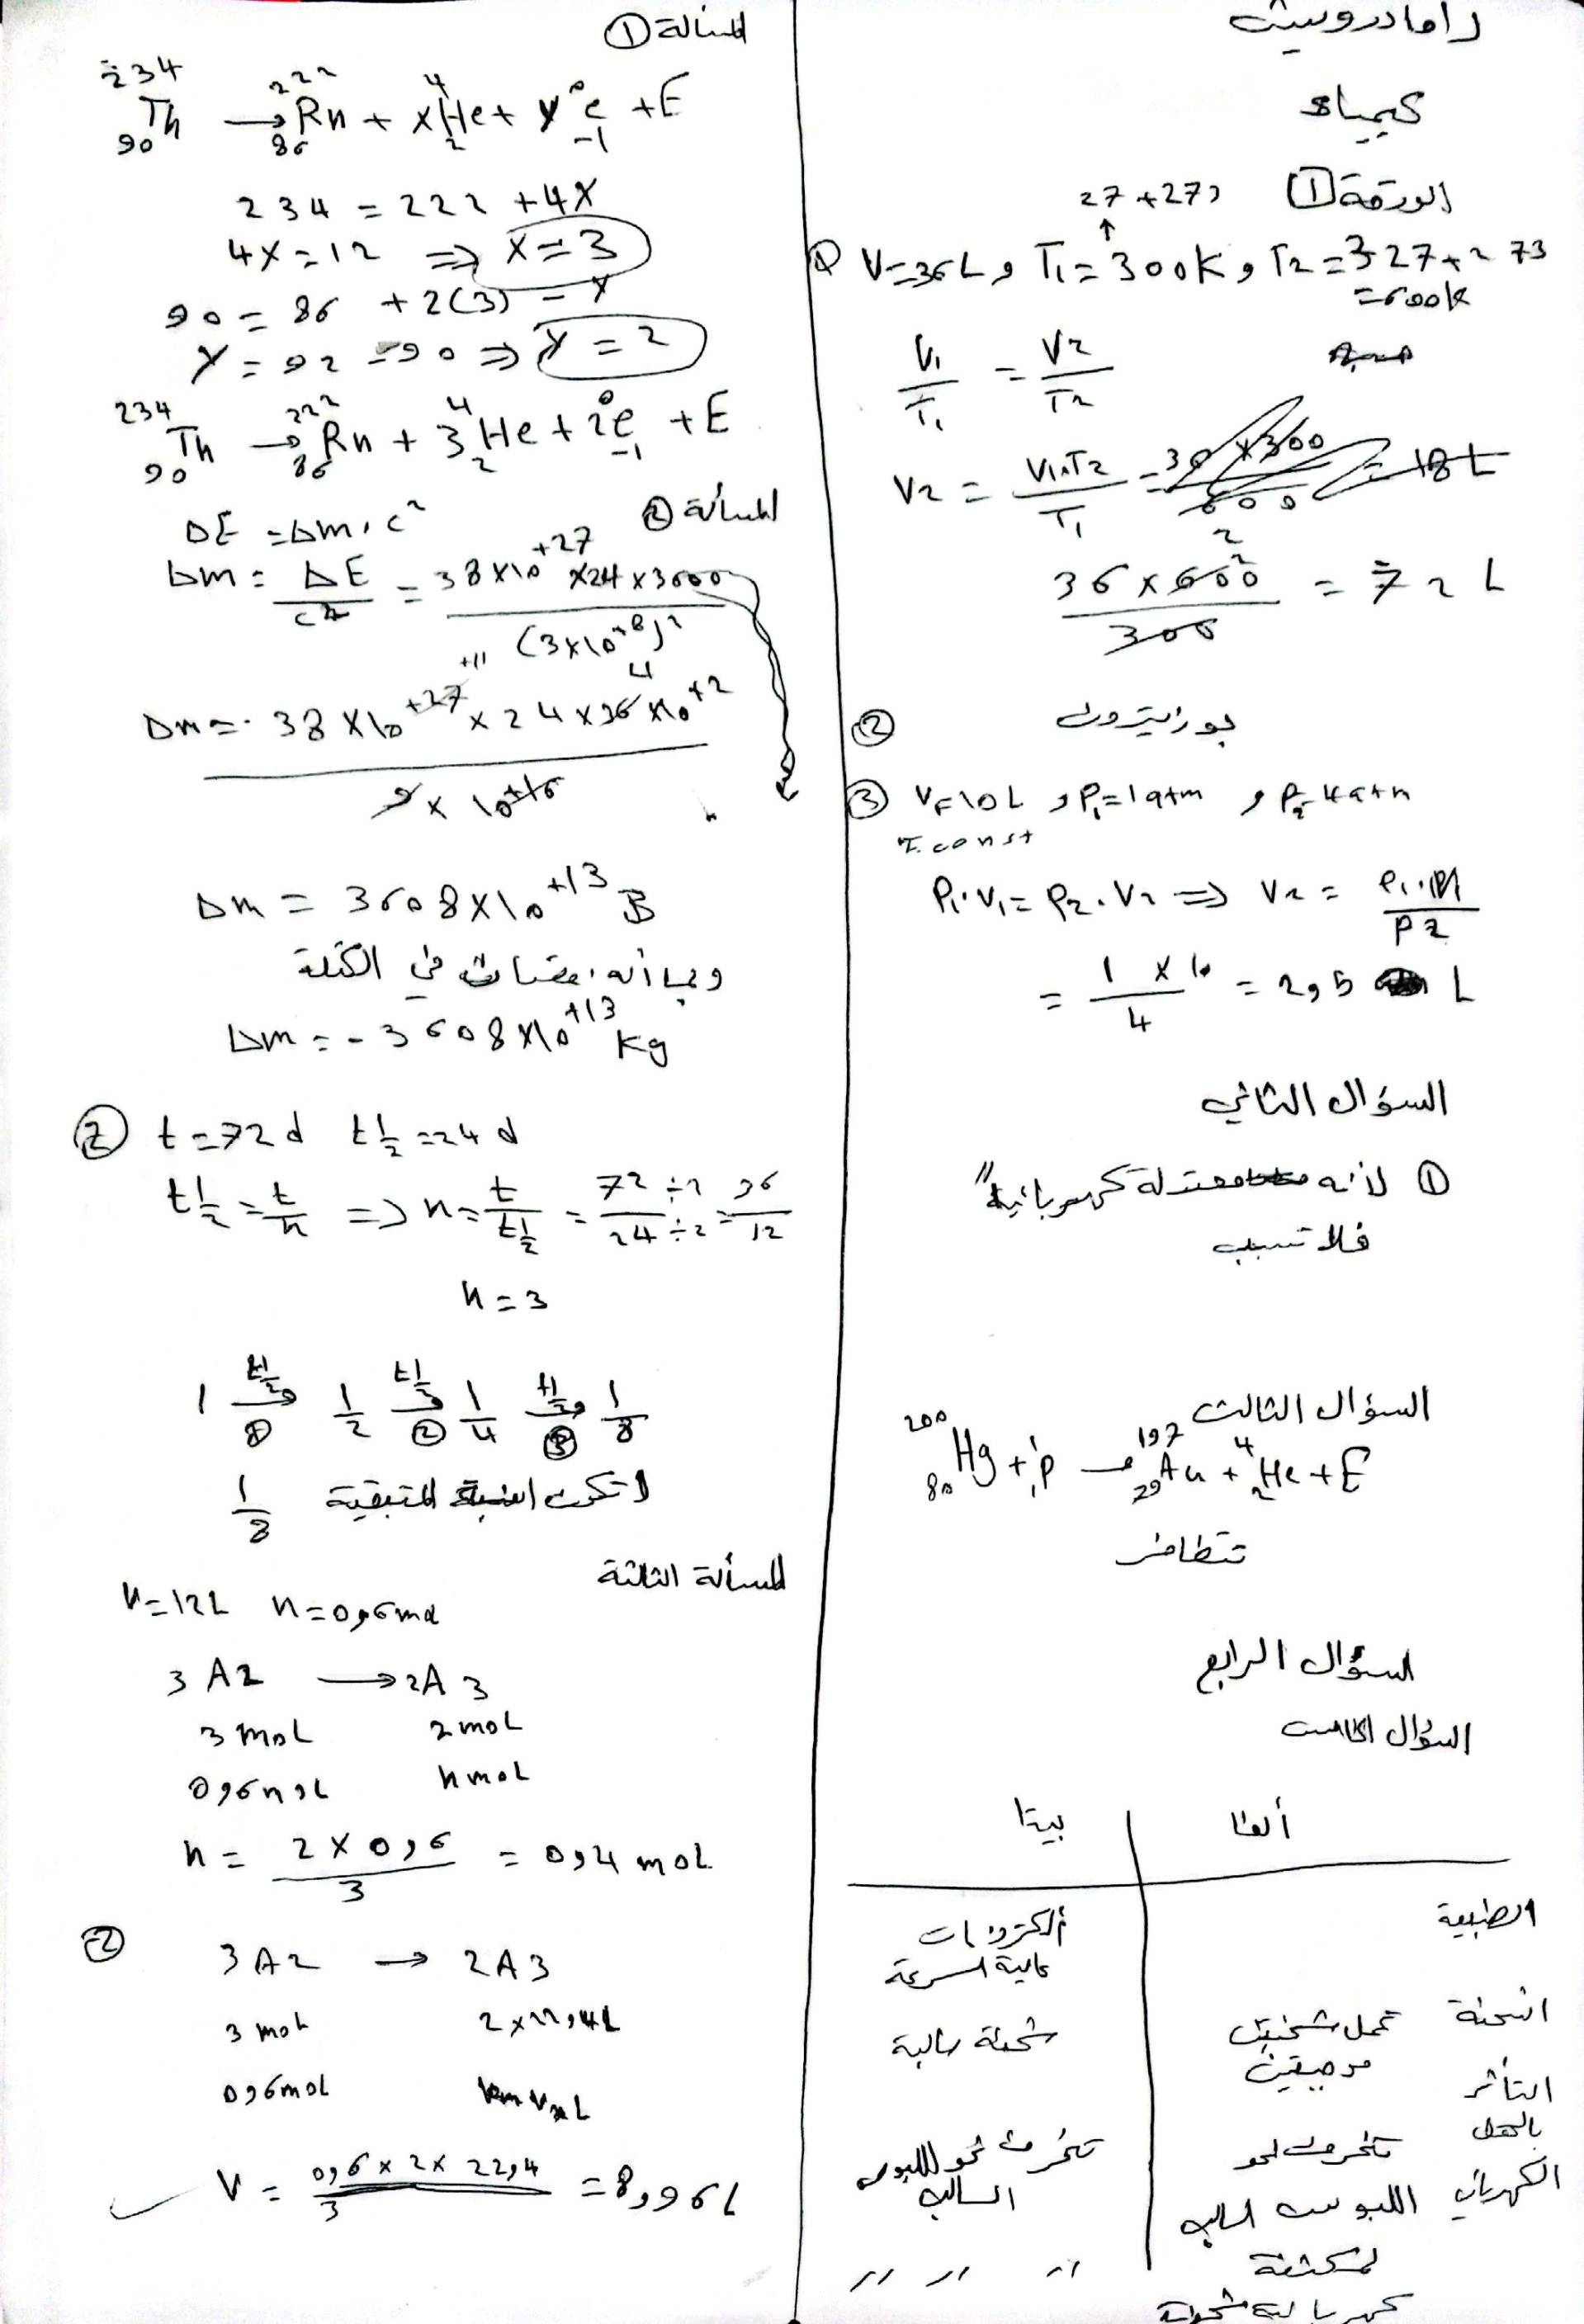 راما درويش
كيمياء
الورقة 1
27 + 273
↑
① V=36L و T1=300K و T2=327+273
=600K
V1/T1 = V2/T2
V2 = V1.T2/T1
36×600/300 = 72 L
② بوزيترون
③ V1=10L و P1=1atm و P2=4atm
T. const
P1.V1=P2.V2 ⇒ V2 = P1.V1/P2
= 1×10/4 = 2,5 L
السؤال الثاني
① لأنه معتدلة كهربائياً
فلا تسبب
السؤال الثالث
²⁰⁰₈₀Hg + ¹₁P → ¹⁹⁷₇₉Au + ⁴₂He + E
تتطافر
السؤال الرابع
السؤال الخامس
ألفا بيتا
الطبيعة ألكترونات
عالية السرعة
الشحنة تحمل شحنتين
موجبتين شحنة سالبة
التأثر
بالحقل
الكهربائي تنحرف نحو
اللبوس السالب
لمكثفة
تنحرف نحو اللبوس
السالب
〃 〃 〃
المسألة ①
²³⁴₉₀Th → ²²²₈₆Rn + x⁴₂He + y⁰₋₁e + E
234 = 222 + 4X
4X = 12 ⇒ X = 3
90 = 86 + 2(3) - Y
Y = 92 - 90 ⇒ Y = 2
²³⁴₉₀Th → ²²²₈₆Rn + 3⁴₂He + 2⁰₋₁e + E
المسألة ②
ΔE = Δm.c²
Δm = ΔE/c² = 38×10⁺²⁷×24×3600/(3×10⁺⁸)²
Δm = 38×10⁺²⁷×24×36×10⁺²/9×10⁺¹⁶
Δm = 3608×10⁺¹³
وبما أنه نقصان في الكتلة
Δm = -3608×10⁺¹³ kg
② t=72d t½=24d
t½ = t/n ⇒ n = t/t½ = 72÷2/24÷2 = 36/12
n=3
1 →(t½ ①) 1/2 →(t½ ②) 1/4 →(t½ ③) 1/8
تكون النسبة المتبقية 1/8
المسألة الثالثة
V=12L n=0,6mol
3A2 → 2A3
3 mol 2 mol
0,6mol n mol
n = 2×0,6/3 = 0,4 mol
② 3A2 → 2A3
3 mol 2×22,4L
0,6mol
V = 0,6×2×22,4/3 = 8,96L